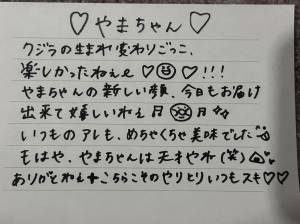 ♡やまちゃん♡
クジラの生まれ変わりごっこ、
楽しかったねぇe ♡☺♡!!!
やまちゃんの新しい顔、今日もお届け
出来て嬉しいねぇ♬ ♬
いつものアレも、めちゃくちゃ美味でした
もはや、やまちゃんは天才やね(笑)
ありがとねぇ+こちらこそのやりとりいつもスキ♡♡